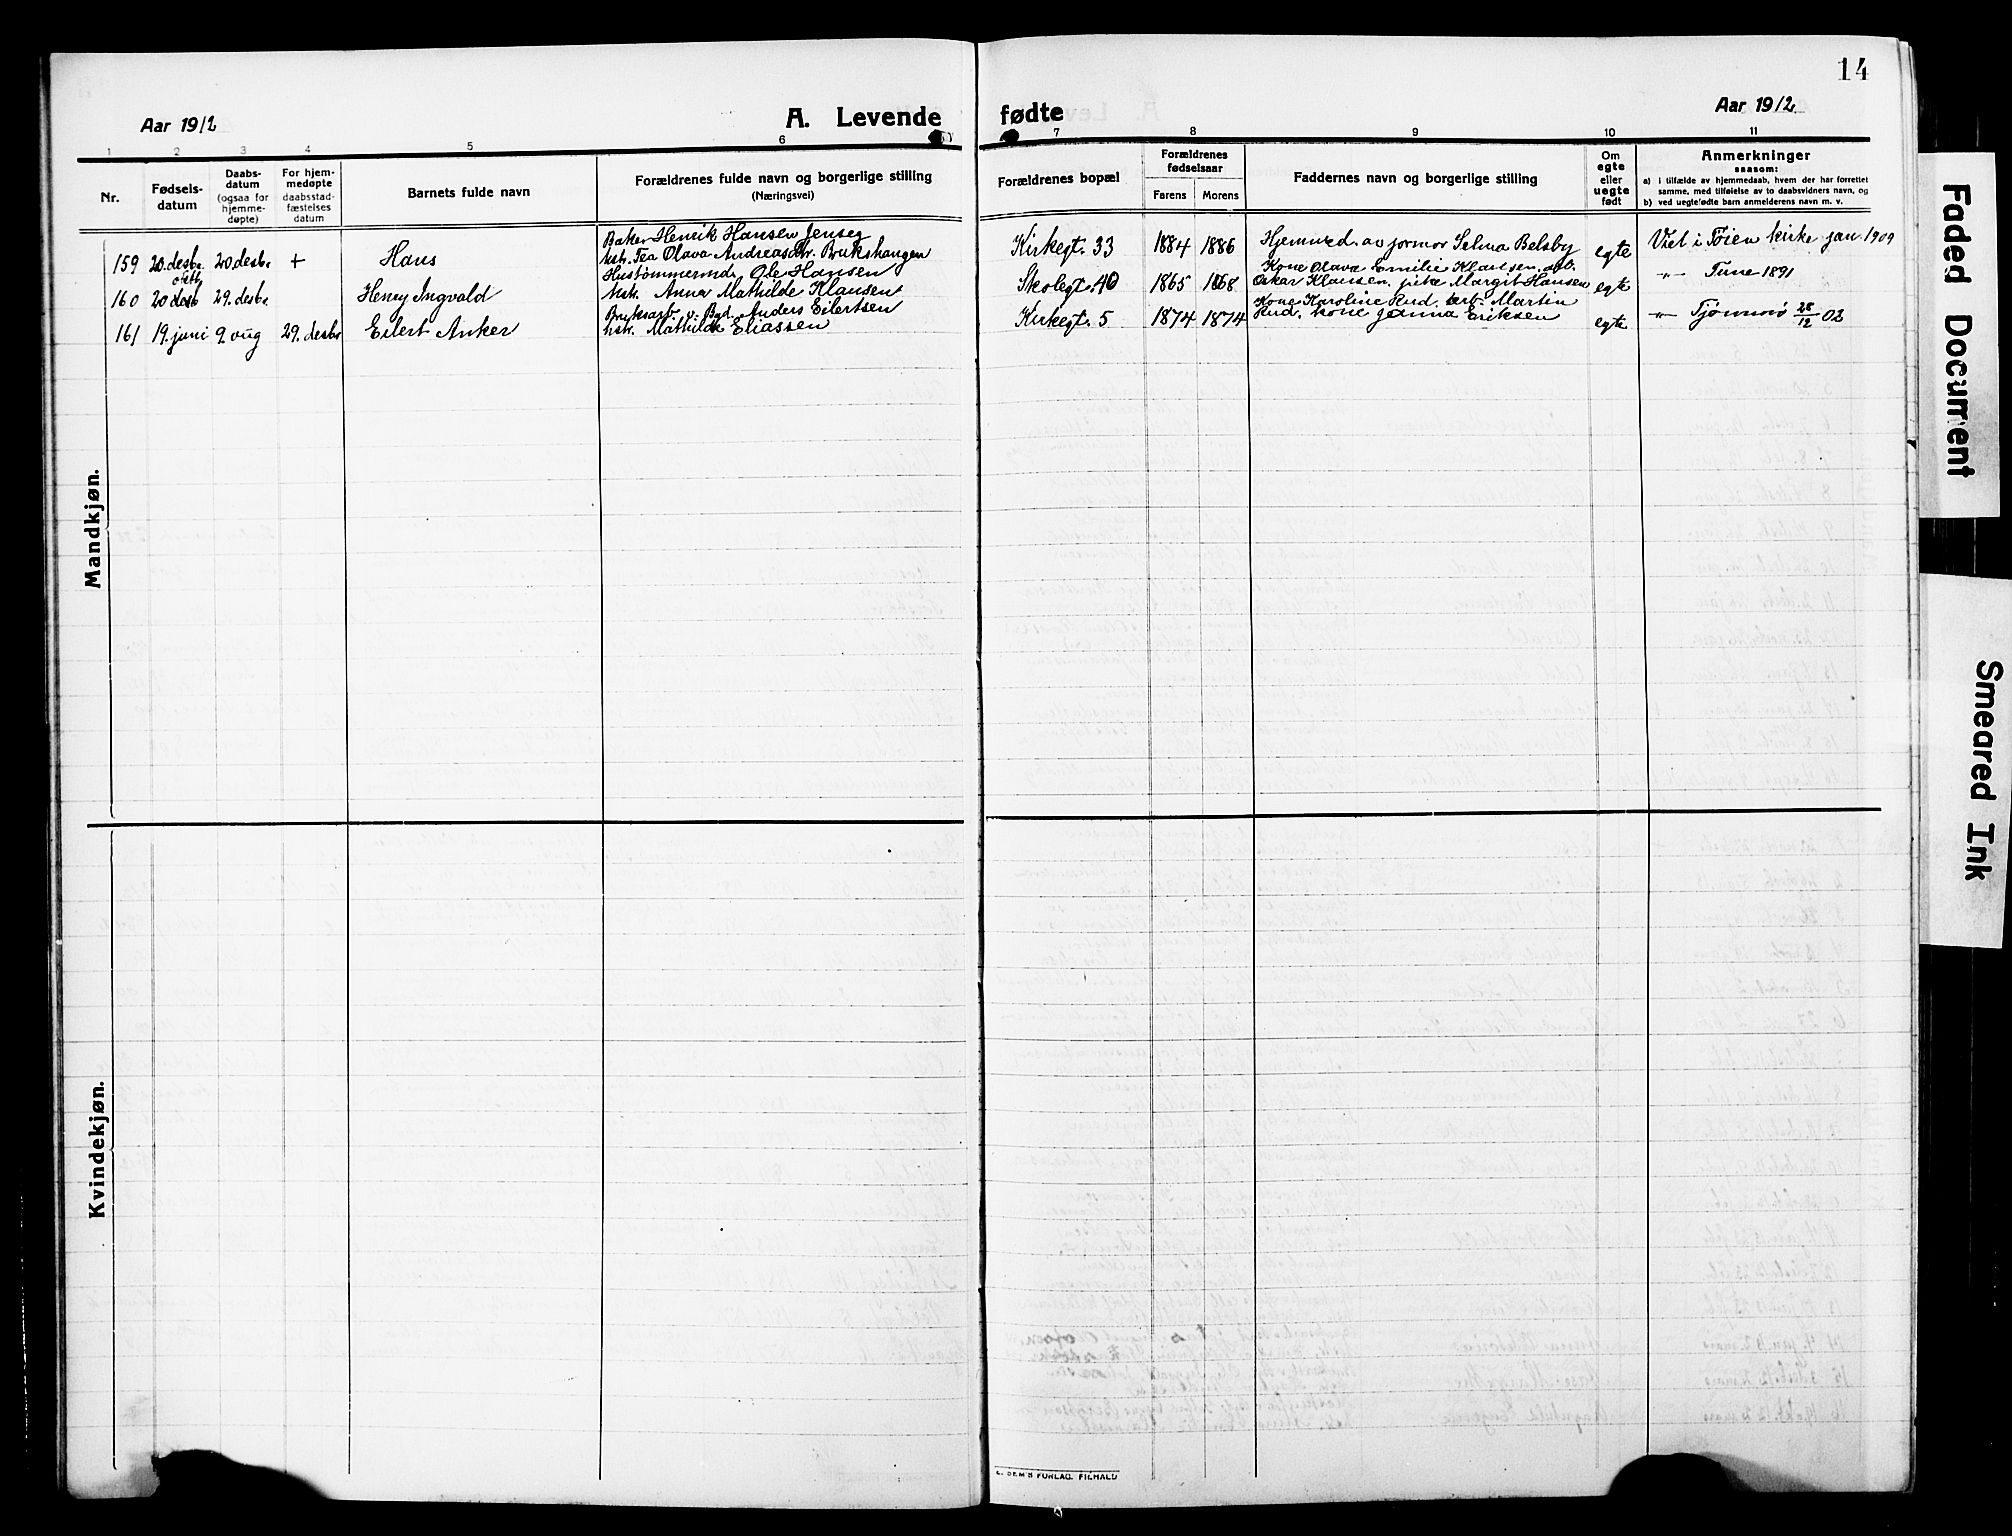 14
Aar 1912
A. Levende fødte
Aar 1912
1 2 3 4 5 6 7 8 9 10 11
Nr.
Fødsels-
datum
Daabs-
datum
(ogsaa for
hjemme-
døpte)
For hjem-
medøpte
daabsstad-
fæstelses
datum
Barnets fulde navn
Forældrenes fulde navn og borgerlige stilling
(Næringsvei)
Forældrenes bopæl
Forældrenes
fødselsaar
Farens Morens
Faddernes navn og borgerlige stilling
Om
egte
eller
uegte
født
Anmerkninger
saasom:
a) i tilfælde av hjemmedaab, hvem der har forrettet
samme, med tilføielse av to daabsvidners navn, og
b) ved uegtefødte barn anmelderens navn m. v.
Mandkjøn.
159 20. desbr. 20 desbr + Hans
Baker Henrik Hansen Jenseg
hstr. Tea Olava Andreasdtr. Brukshaugen
Kirkegt. 33 1884 1886
Hjemmed. av jormor Selma Belsby
egte
Viet i Tøien kirke jan. 1909
160 20 desb 29. desbr Henry Ingvald
Hustømmermd. Ole Hansen
hstr. Anna Mathilde Klausen
Skolegt. 40 1865 1868
Kone Olava Emilie Klausen, arb.
Oskar Klausen, pike Margit Hansen
egte
-"- Tune 1891
161 19. juni 9. aug 29. desbr Eilert Anker
Bruksarb. v. Bgd. Anders Eilertsen
hstr. Mathilde Eliassen
Kirkegt. 5 1874 1874
Kone Karoline Rud, arb. Martin
Rud, kone Jenna Eriksen
egte
-"- Tjømø 28/12 02
Kvindekjøn.
Faded Document
Smeared Ink